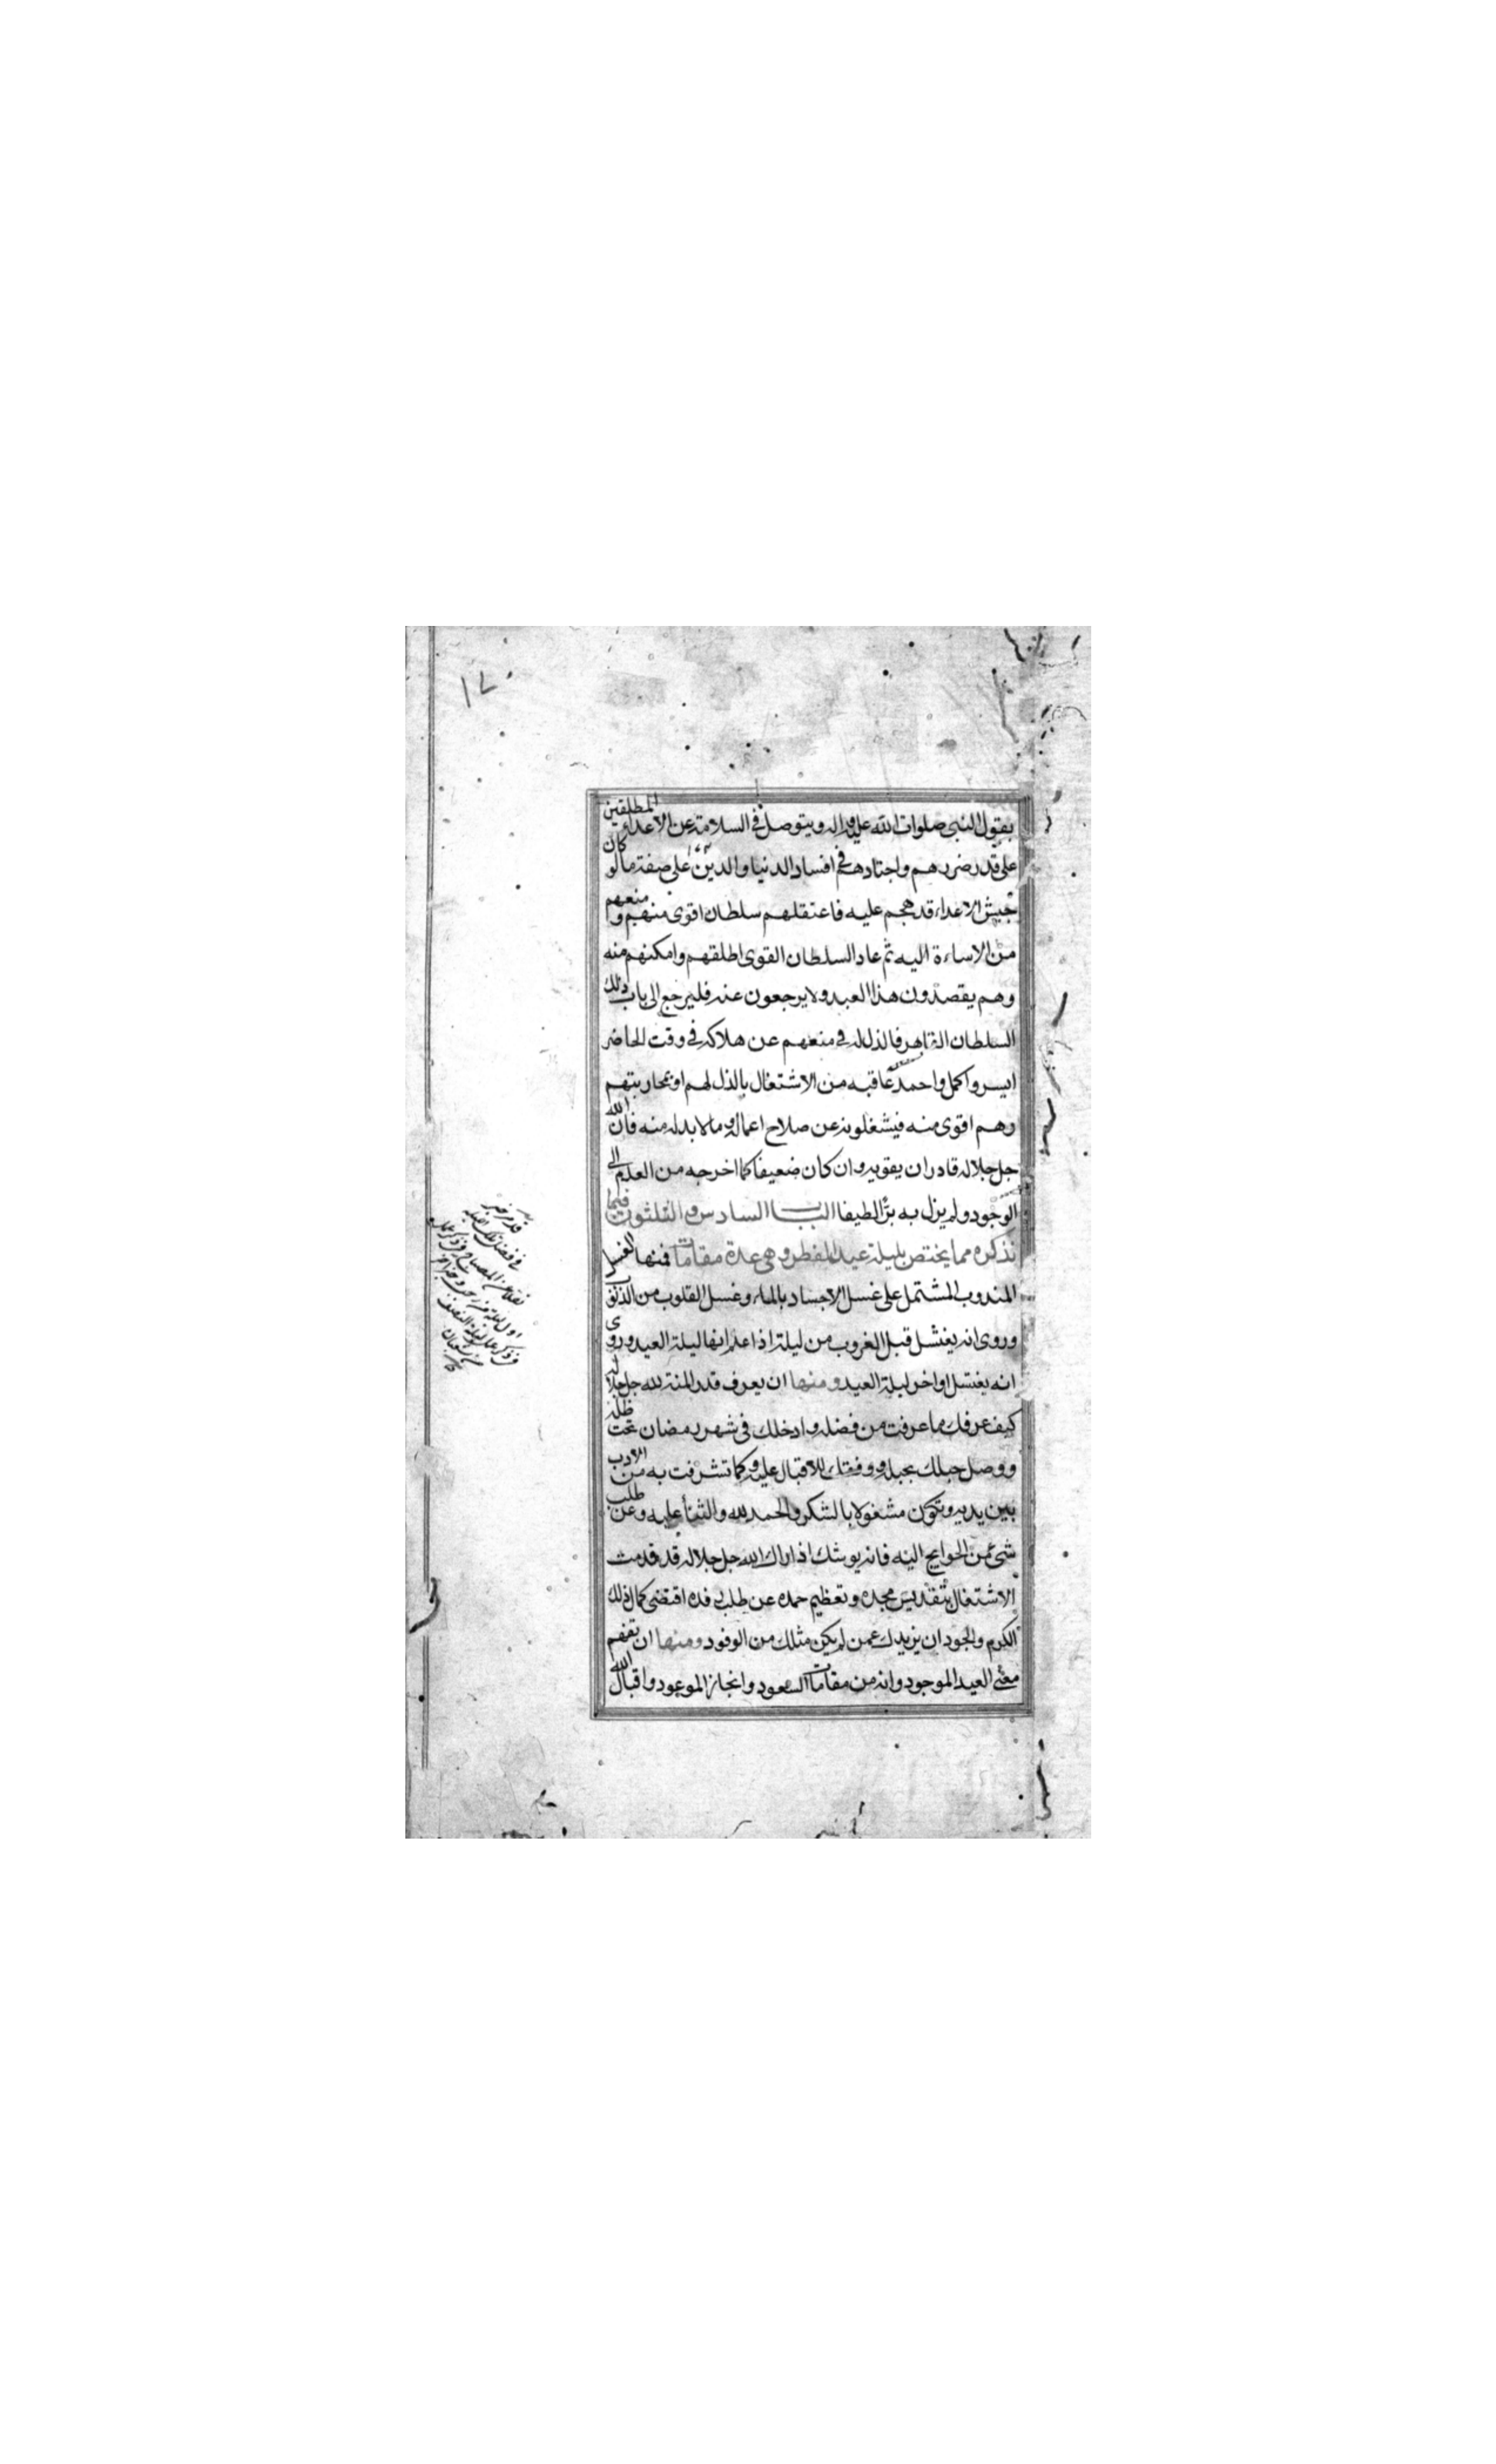 بقول النبي صلوات الله عليه واله ويتوصل في السلامة عن الاعداء المطلقين
على قدر ضررهم واجتهادهم في افساد الدنيا والدين على صفة ما لو كان
جيش الاعداء قد هجم عليه فاعتقلهم سلطان اقوى منهم ومنعهم
من الاساءة اليه ثم عاد السلطان القوى اطلقهم وامكنهم منه
وهم يقصدون هذا العبد ولا يرجعون عنه فليرجع الى باب ذلك
السلطان القاهر فالذل له في منعهم عن هلاكه في وقت الحاضر
ايسر واكمل واحمد عاقبه من الاشتغال بالذل لهم او بمحاربتهم
وهم اقوى منه فيشغلونه عن صلاح اعماله وما لا بد له منه فان الله
جل جلاله قادر ان يقويه وان كان ضعيفا كما اخرجه من العدم الى
الوجود ولم يزل به برا لطيفا الباب السادس والثلثون فيما
نذكره مما يختص بليلة عيد الفطر وهى عدة مقامات فمنها الغسل
المندوب المشتمل على غسل الاجساد بالماء وغسل القلوب من الذنوب
وروى انه يغتسل قبل الغروب من ليلة اذا علم انها ليلة العيد وروى
انه يغتسل اواخر ليلة العيد ومنها ان يعرف قدر المنة لله جل جلاله
كيف عرفك ما عرفت من فضله وادخلك في شهر رمضان تحت ظله
ووصل حبلك بحبله ووفقك للاقبال عليه وكما تشرفت به من الادب
بين يديه وتكون مشغولا بالشكر والحمد لله والثناء عليه وعن طلب
شئ من الحوايج اليه فانه يوشك اذا راك الله جل جلاله قد قدمت
الاشتغال بتقديس مجده وتعظيم حمده عن طلب رفده اقتضى كمال ذلك
الكرم والجود ان يزيدك عمن لم يكن مثلك من الوفود ومنها ان تفهم
معنى العيد الموجود وانه من مقامات السعود وانجاز الموعود واقبال الله